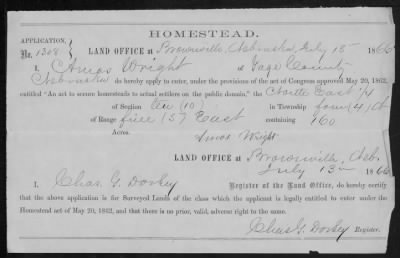 HOMESTEAD.
APPLICATION,
No. 1308
LAND OFFICE at Brownville, Nebraska, July 13 1866
I, Amos Wright of Gage County
Nebraska do hereby apply to enter, under the provisions of the act of Congress approved May 20, 1862,
entitled "An act to secure homesteads to actual settlers on the public domain," the North East 1/4
of Section ten (10) in Township four (4)
of Range five (5) East containing 160
Acres.
Amos Wright
LAND OFFICE at Brownville, Neb.
July 13 1866
I, Chas. G. Dorsey Register of the Land Office, do hereby certify
that the above application is for Surveyed Lands of the class which the applicant is legally entitled to enter under the
Homestead act of May 20, 1862, and that there is no prior, valid, adverse right to the same.
Chas G. Dorsey Register.